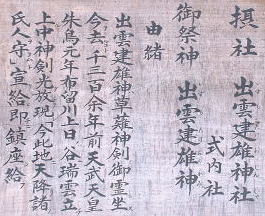 摂社 出雲建雄神社
式内社
御祭神 出雲建雄神
由緒
出雲建雄神草薙神剣御霊坐
今去千三百余年前天武天皇
朱鳥元年布留川上日谷瑞雲立
上中神剣光放現今此地天降諸
氏人守い宣給即鎮座給